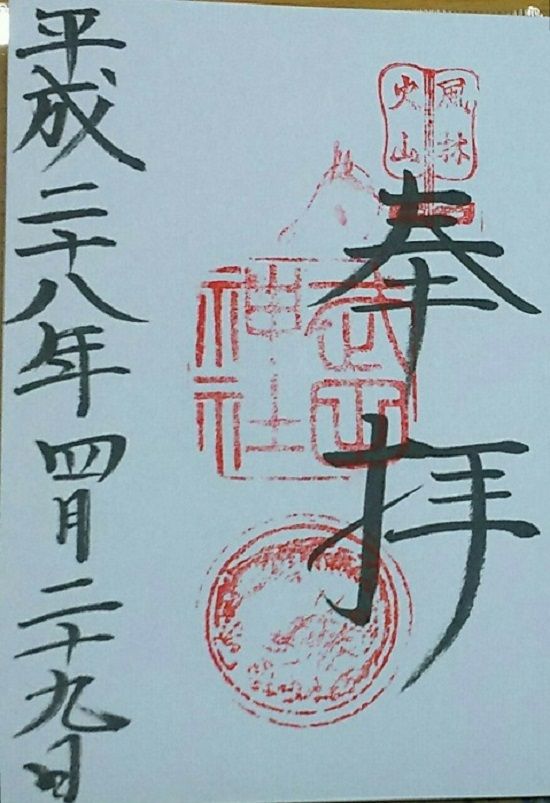 風林
火山
奉拝
武田
神社
平成二十八年四月二十九日